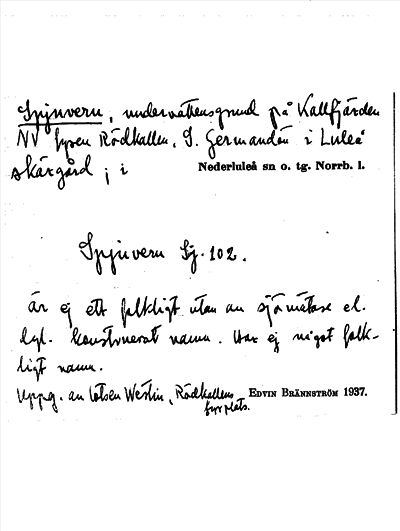 Spjuveru, undervattensgrund på Kallfjärden
NV fyren Rödkallen, S. Germandön i Luleå
skärgård i i
Nederluleå sn o. tg. Norrb. l.
Spjuveru Sj. 102.
är ej ett folkligt utan av sjömätare el.
dyl. konstruerat namn. Har ej något folk-
ligt namn.
Uppg. av lotsen Westin, Rödkallens
fyrplats.
EDVIN BRÄNNSTRÖM 1937.